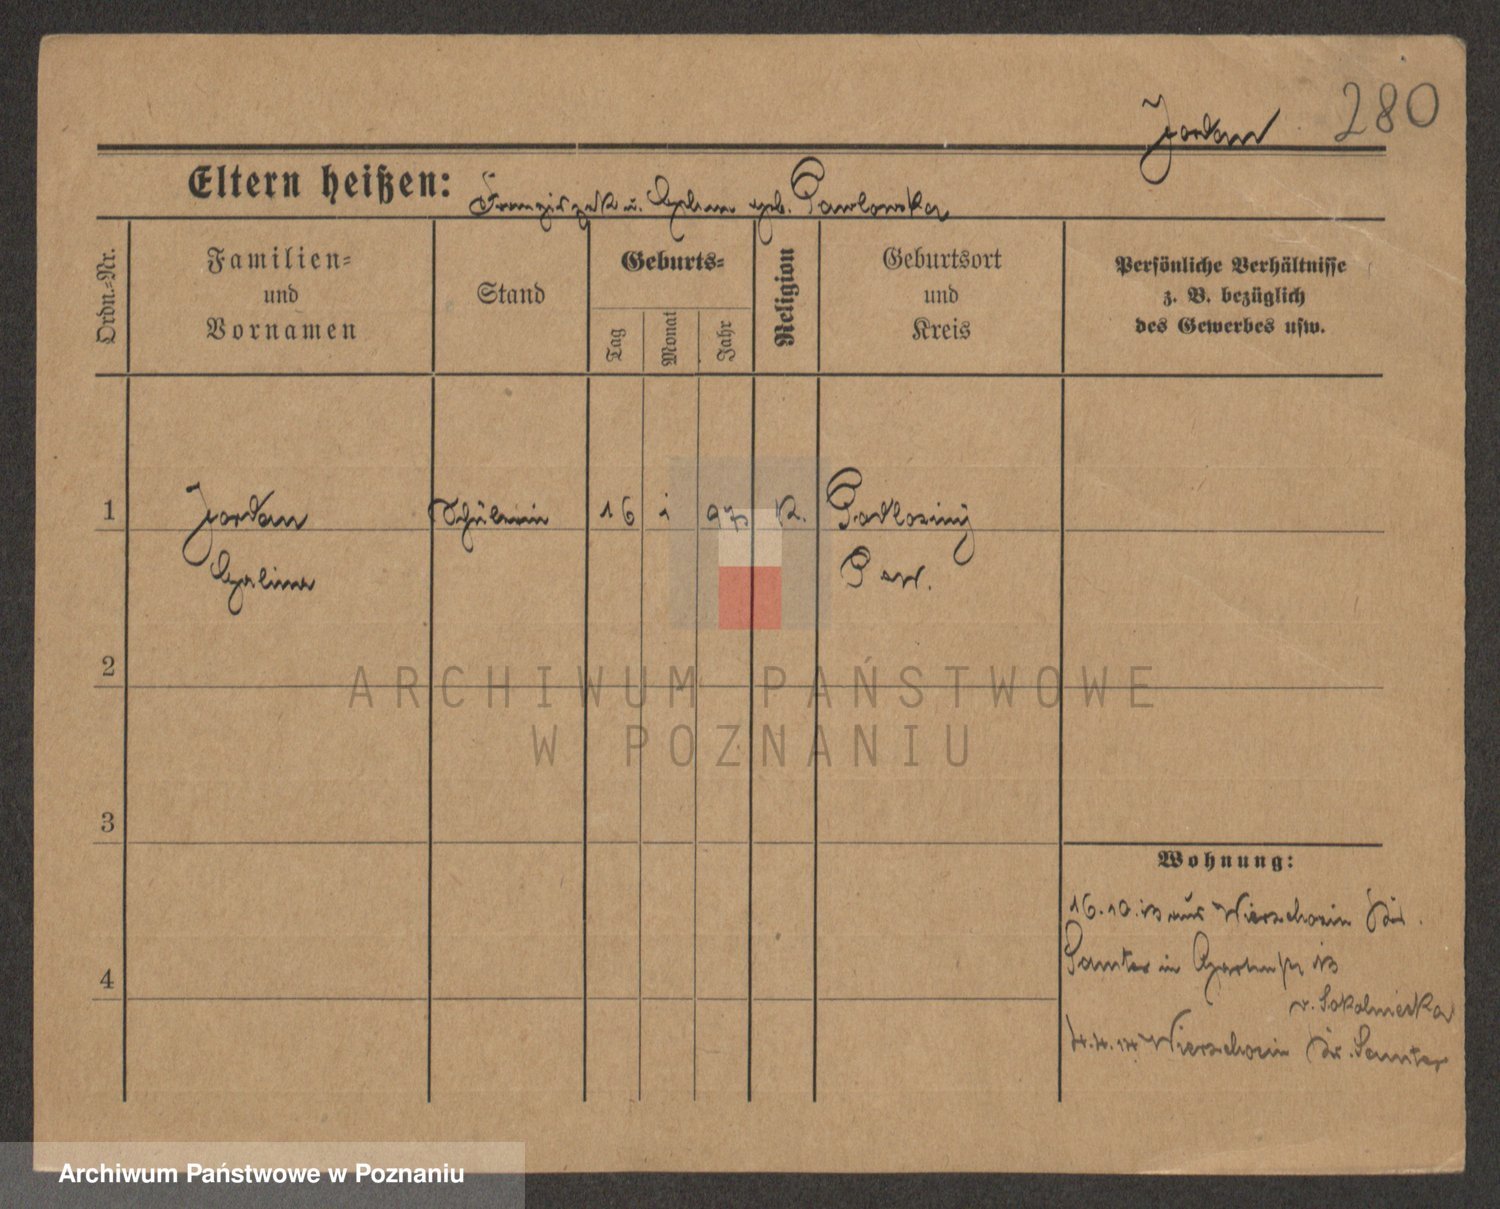 280
Jordan
Eltern heißen: Franziszek u. geb. Pawlowska
Ordn.=Nr.
Familien=
und
Vornamen
Stand
Geburts=
Tag
Monat
Jahr
Religion
Geburtsort
und
Kreis
Persönliche Verhältnisse
z. B. bezüglich
des Gewerbes usw.
1 Jordan Schülerin 16 1 97 K.
Halina
2
ARCHIWUM PAŃSTWOWE
W POZNANIU
3
Wohnung:
16.10.13 aus Wierzchocin Kr.
Samter in Gartenstr 13
v. Sokolnicka
4
4.4.14 Wierzchocin Kr. Samter
Archiwum Państwowe w Poznaniu